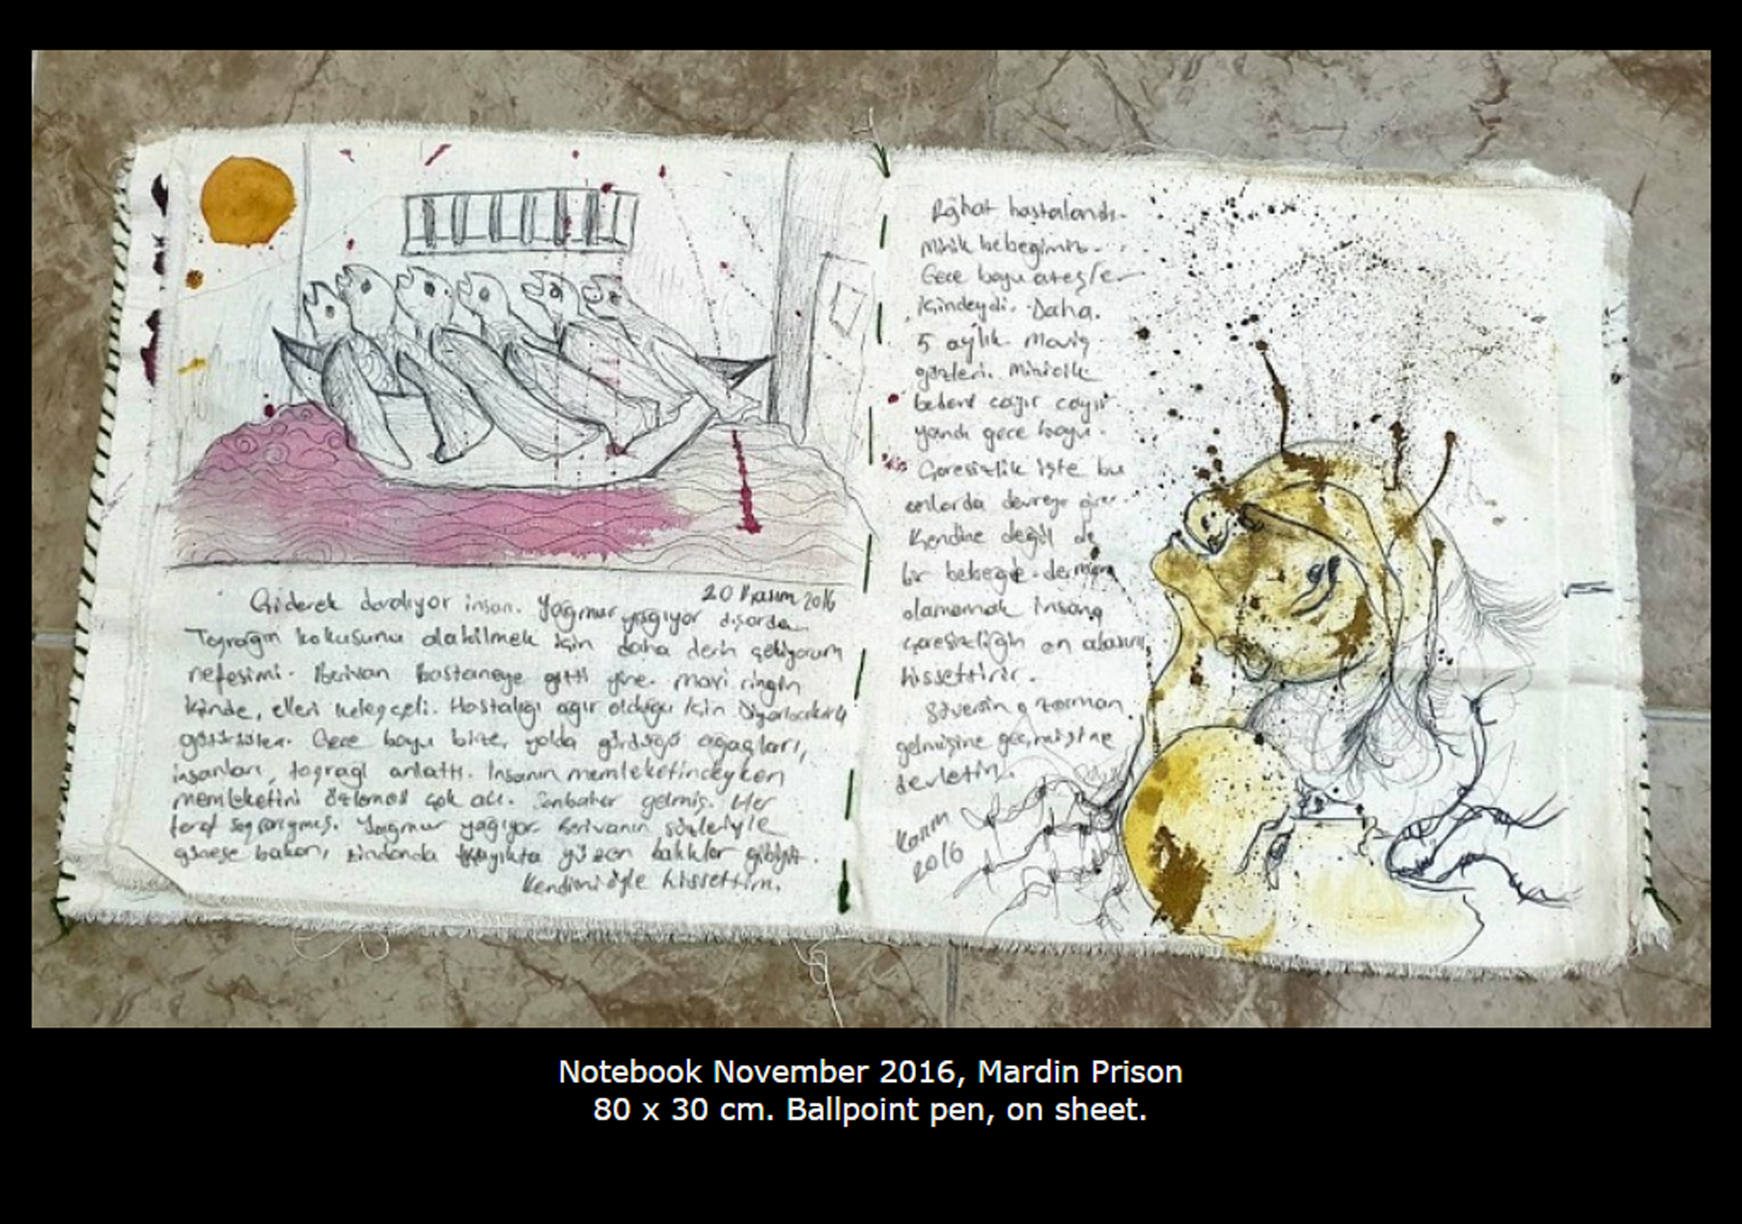 20 Kasım 2016
Giderek daralıyor insan. Yağmur yağıyor dışarda.
Toprağın kokusunu alabilmek için daha derin çekiyorum
nefesimi. Berivan hastaneye gitti yine. Mavi ringin
içinde, elleri kelepçeli. Hastalığı ağır olduğu için Diyarbakır'a
götürdüler. Gece boyu bize, yolda gördüğü ağaçları,
insanları, toprağı anlattı. İnsanın memleketindeyken
memleketini özlemesi çok acı. Sonbahar gelmiş. Her
taraf sapsarıymış. Yağmur yağıyor. Berivanın sözleriyle
güneşe bakan, zindanda kayıkta yüzen balıklar gibiyiz.
Kendimi öyle hissettim.
hastalandı.
Minik bebeğimiz.
Gece boyu ateşle
içindeydi. Daha.
5 aylık. Maviş
gözleri. Minicik
bedeni cayır cayır
yandı gece boyu.
Çaresizlik işte bu
anlarda devreye girer
Kendine değil de
bir bebeğe derman
olamamak insana
çaresizliğin en alasını
hissettirir.
o zaman
gelmişine geçmişine
devletin.
Kasım
2016
Notebook November 2016, Mardin Prison
80 x 30 cm. Ballpoint pen, on sheet.